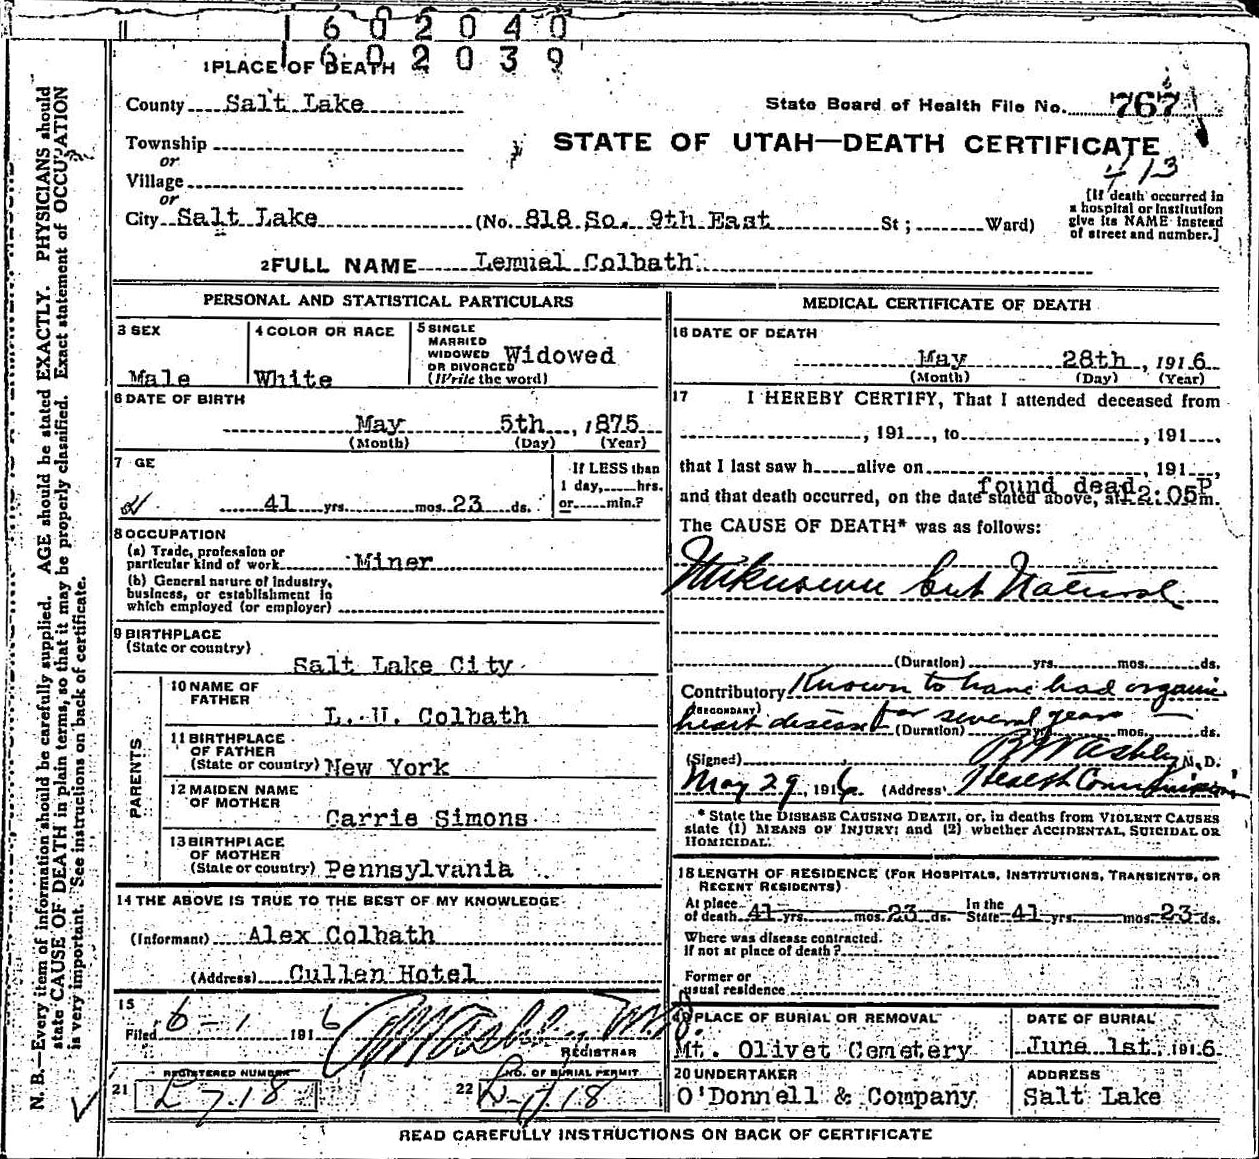 602040
602039
1 PLACE OF DEATH
County Salt Lake
State Board of Health File No. 767
STATE OF UTAH—DEATH CERTIFICATE
413
Township
or
Village
or
City Salt Lake (No. 818 So. 9th East St; Ward)
[If death occurred in
a hospital or institution
give its NAME instead
of street and number.]
2 FULL NAME Lemuel Colbath
PERSONAL AND STATISTICAL PARTICULARS
3 SEX
Male
4 COLOR OR RACE
White
5 SINGLE
MARRIED
WIDOWED
OR DIVORCED
(Write the word)
Widowed
6 DATE OF BIRTH
May 5th, 1875
(Month) (Day) (Year)
7 GE
41 yrs. mos. 23 ds.
If LESS than
1 day, hrs.
or min.?
8 OCCUPATION
(a) Trade, profession or
particular kind of work Miner
(b) General nature of industry,
business, or establishment in
which employed (or employer)
9 BIRTHPLACE
(State or country)
Salt Lake City
PARENTS
10 NAME OF
FATHER
L. U. Colbath
11 BIRTHPLACE
OF FATHER
(State or country) New York
12 MAIDEN NAME
OF MOTHER
Carrie Simons
13 BIRTHPLACE
OF MOTHER
(State or country) Pennsylvania
14 THE ABOVE IS TRUE TO THE BEST OF MY KNOWLEDGE
(Informant) Alex Colbath
(Address) Cullen Hotel
15
Filed 6-1 1916
REGISTRAR
21 REGISTERED NUMBER
22 NO. OF BURIAL PERMIT
MEDICAL CERTIFICATE OF DEATH
16 DATE OF DEATH
May 28th, 1916
(Month) (Day) (Year)
17 I HEREBY CERTIFY, That I attended deceased from
, 191 , to , 191 ,
that I last saw h alive on , 191 ,
found dead P
and that death occurred, on the date stated above, at 12:05 m.
The CAUSE OF DEATH* was as follows:
Unknown but Natural
(Duration) yrs. mos. ds.
Contributory Known to have had organic
(SECONDARY)
heart disease for several years
(Duration) yrs. mos. ds.
(Signed) M. D.
May 29, 1916 (Address) Health Commissioner
* State the DISEASE CAUSING DEATH, or, in deaths from VIOLENT CAUSES
state (1) MEANS OF INJURY; and (2) whether ACCIDENTAL, SUICIDAL OR
HOMICIDAL.
18 LENGTH OF RESIDENCE (FOR HOSPITALS, INSTITUTIONS, TRANSIENTS, OR
RECENT RESIDENTS)
At place
of death 41 yrs. mos. 23 ds.
In the
State 41 yrs. mos. 23 ds.
Where was disease contracted.
If not at place of death?
Former or
usual residence
19 PLACE OF BURIAL OR REMOVAL
Mt. Olivet Cemetery
DATE OF BURIAL
June 1st, 1916
20 UNDERTAKER
O'Donnell & Company
ADDRESS
Salt Lake
READ CAREFULLY INSTRUCTIONS ON BACK OF CERTIFICATE
N. B.—Every item of information should be carefully supplied. AGE should be stated EXACTLY. PHYSICIANS should
state CAUSE OF DEATH in plain terms, so that it may be properly classified. Exact statement of OCCUPATION
is very important. See instructions on back of certificate.